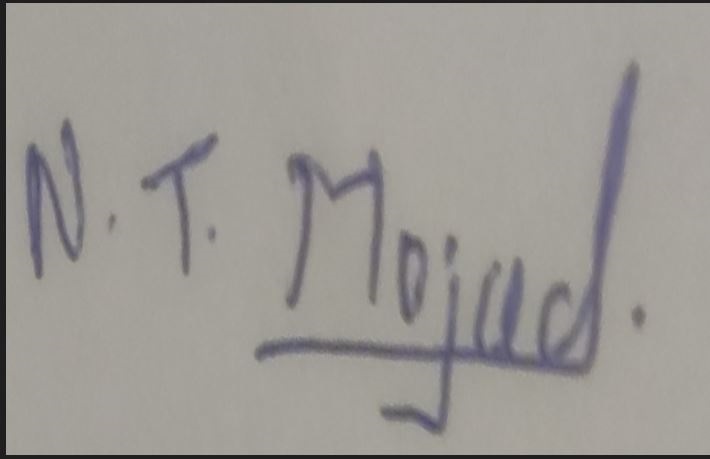 N. T. Mojad.